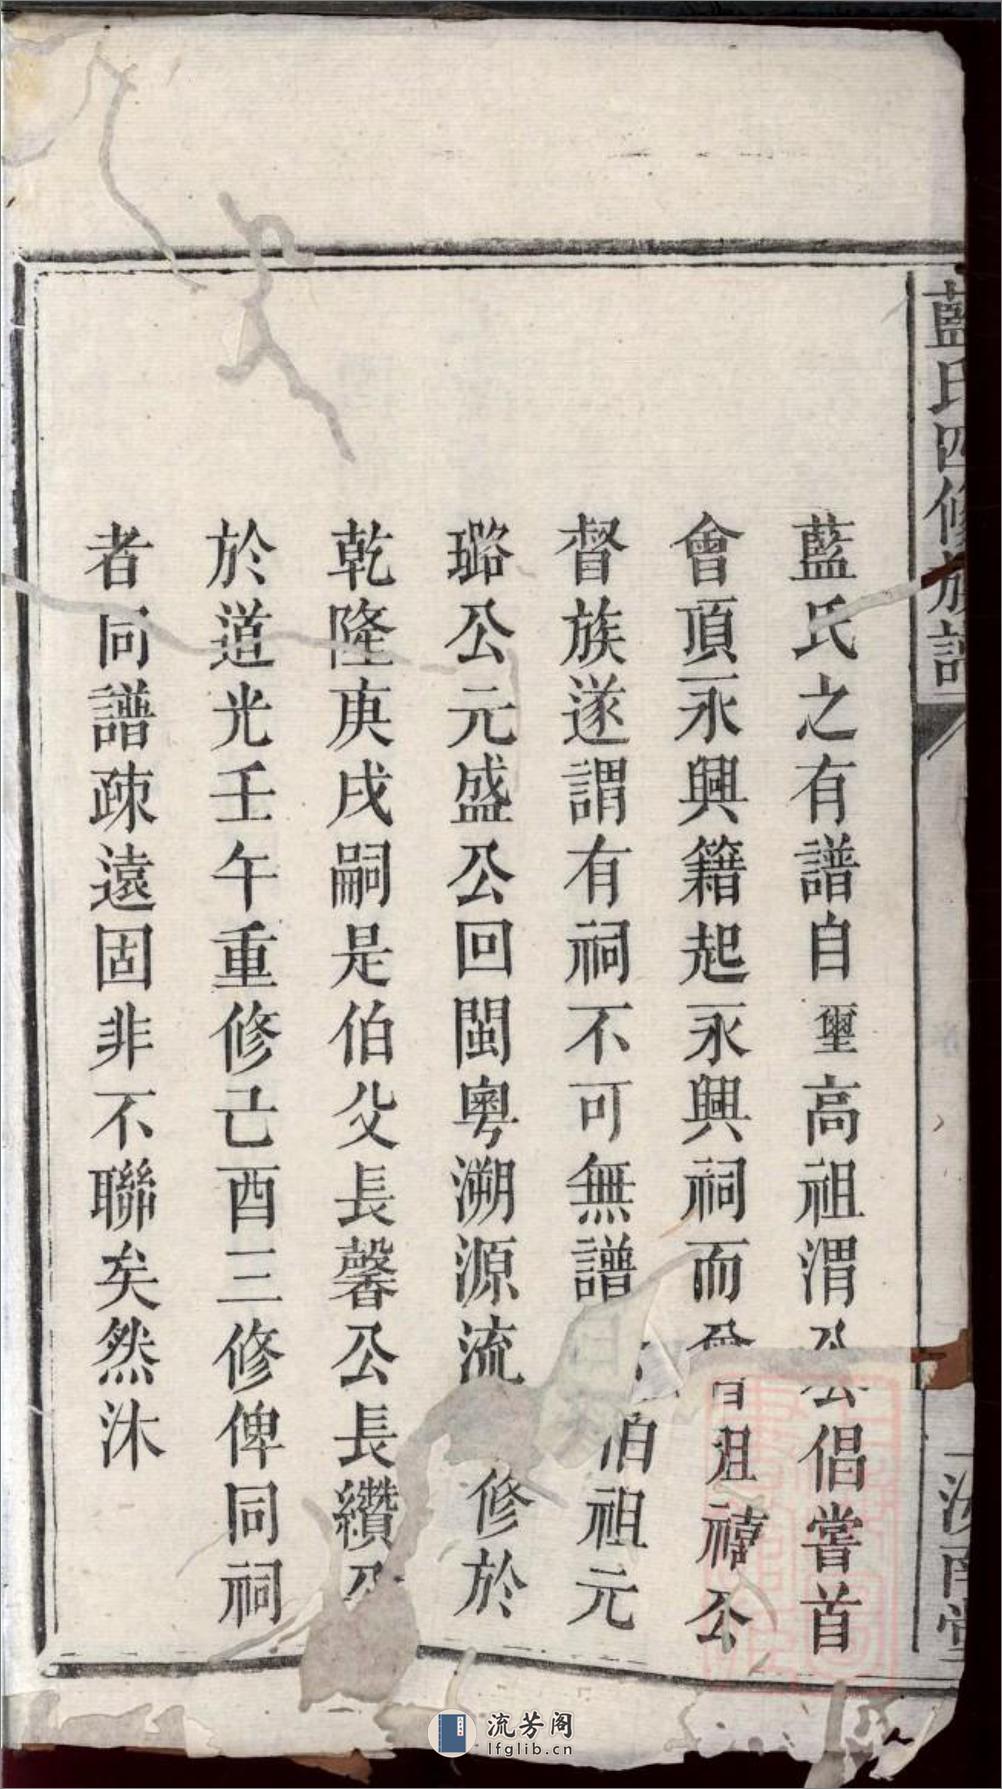 藍氏四修族譜
汝南堂
藍氏之有譜自璽高祖渭公倡嘗首
會頂永興籍起永興祠而曾祖禧公
督族遂謂有祠不可無譜伯祖元
璐公元盛公回閩粵溯源流修於
乾隆庚戌嗣是伯父長馨公長纘公
於道光壬午重修己酉三修俾同祠
者同譜疎遠固非不聯矣然沐
流芳阁
lfglib.cn